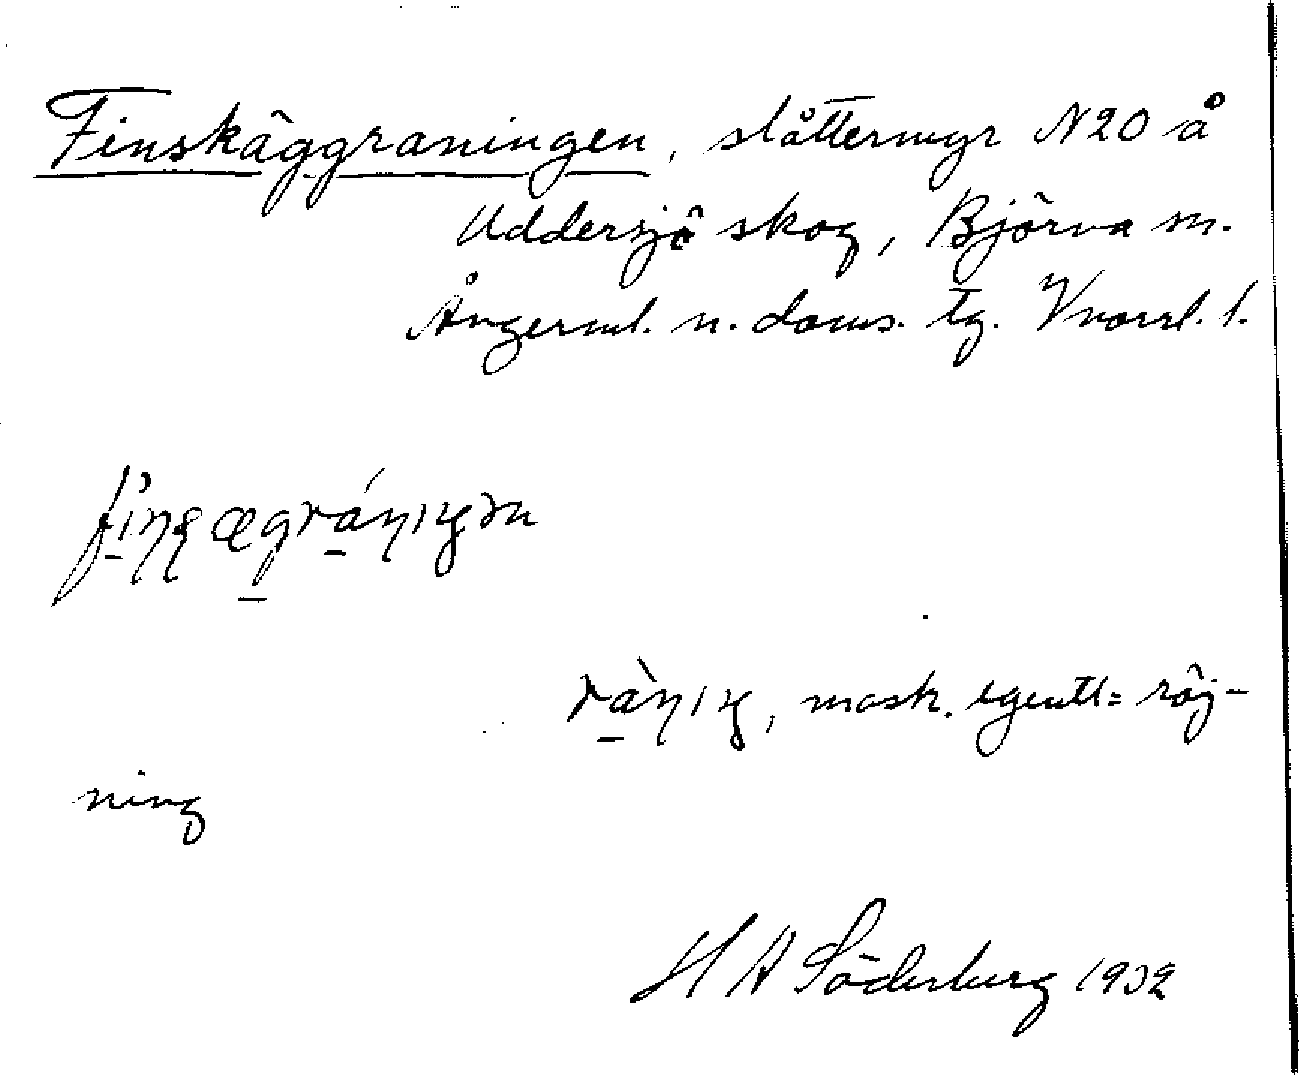 Finskäggraningen, slåttermyr N20 å
Uddersjö skog, Björna sn.
Ångerml. n. doms. tg. Vnorrl. l.
mask. egentl = röj-
ning
H A Söderberg 1932